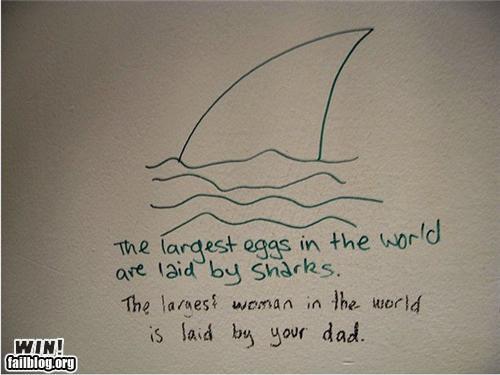 The largest eggs in the world
are laid by sharks.
The largest woman in the world
is laid by your dad.
WIN!
failblog.org